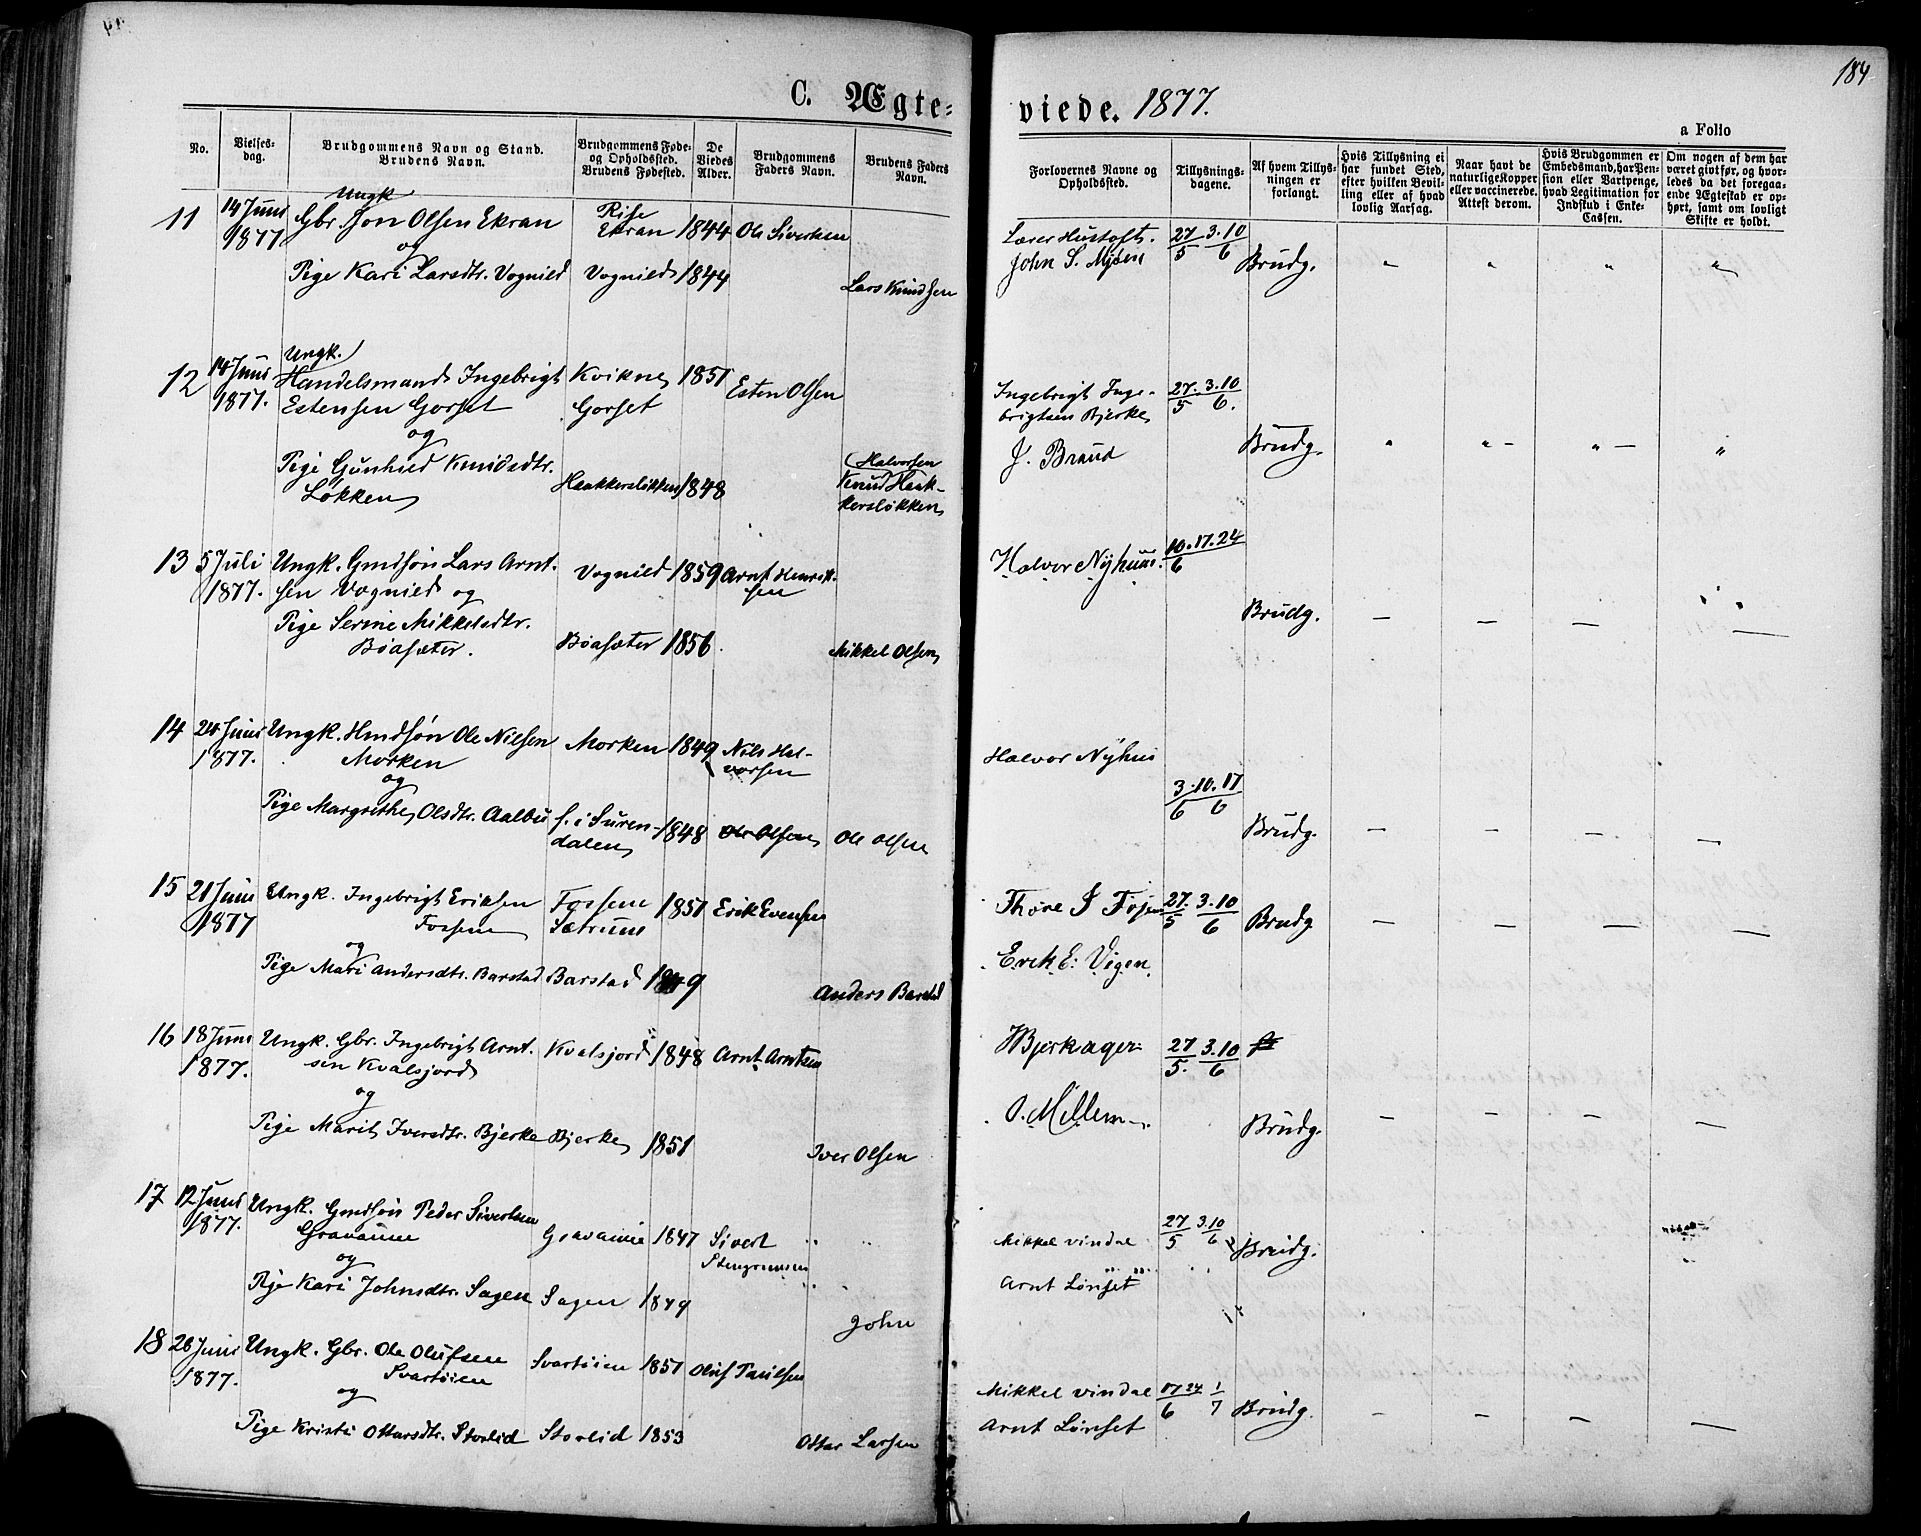 184
C. Ægte-
viede. 1877.
a Folio
No.
Vielses-
dag.
Brudgommens Navn og Stand.
Brudens Navn.
Brudgommens Føde-
og Opholdssted.
Brudens Fødested.
De
Viedes
Alder.
Brudgommens
Faders Navn.
Brudens Faders
Navn.
Forlovernes Navne og
Opholdssted.
Tillysnings-
dagene.
Af hvem Tillys-
ningen er
forlangt.
Hvis Tillysning ei
har fundet Sted,
efter hvilken Bevil-
ling eller af hvad
lovlig Aarsag.
Naar havt de
naturlige Kopper
eller vaccinerede.
Attest derom.
Hvis Brudgommen er
Embedsmand, har Pen-
sion eller Vartpenge,
hvad Legitimation for
Indskud i Enke-
Cassen.
Om nogen af dem har
været givt før, og hvor-
ledes da det foregaa-
ende Ægteskab er op-
hørt, samt om lovligt
Skifte er holdt.
11
14 Juni
1877
Ungk
Gbr. Jon Olsen Ekran
og
Pige Kari Larsdtr. Vognild
Rise
Ekran
Vognild
1844
1844
Ole Sivertsen
Lars Knudsen
Lærer Hustoft.
John S. Mjøen
27/5 3.10/6
Brudg.
12
14 Juni
1877.
Ungk.
Handelsmand Ingebrigt
Estensen Gorset
og
Pige Gunhild Knudsdtr.
Løkken
Kvikne
Gorset
Haakkersløkken
1851
1848
Esten Olsen
Halvorsen
Knud Haak-
kersløkken
Ingebrigt Inge-
brigtsen Bjerke
J. Braud
27/5 3.10/6
Brudg.
13
5 Juli
1877.
Ungk. Gmdsøn Lars Arnt.
sen Vognild og
Pige Serine Mikkelsdtr.
Böasæter.
Vognild
Böasæter
1859
1856
Arnt Henrik-
sen
Mikkel Olsen
Halvor Nyhuus.
10.17.24/6
Brudg.
14
24 Juni
1877.
Ungk. Hmdsøn Ole Nilsen
Morken
og
Pige Margrethe Olsdtr. Aalbu
Morken
f. i Suren-
dalen
1849
1848
Nils Hal-
vorsen
Ole Olsen
Ole Olsen
Halvor Nyhus
3.10.17/6 6
Brudg.
15
21 Juni
1877
Ungk. Ingebrigt Eriksen
Fossem
og
Pige Mari Andersdtr. Barstad
Fossem
Sætrum
Barstad
1851
1849
Erik Evensen
Anders Barstad
Thore I
Erik E. Vigen
27/5 3.10/6
Brudg
16
18 Juni
1877.
Ungk. Gbr. Ingebrigt Arnt.
sen Kvalsjord
og
Pige Marit Iversdtr. Bjerke
Kvalsjord
Bjerke
1848
1851
Arnt Arntsen
Iver Olsen
Bjerkager
O. Mellem
27/5. 3.10/6
Brudg.
17
12 Juni
1877.
Ungk. Gmdsøn Peder Sivertsen
Gravaune
og
Pige Kari Johnsdtr. Sagen
Gravaune
Sagen
1847
1849
Sivert
John
Mikkel Vindal
Arnt Lønset
27/5 3.10/6
Brudg.
18
28 Juni
1877.
Ungk. Gbr. Ole Olufsen
Svartøien
og
Pige Kristi Ottarsdtr. Storlid
Svartøien
Storlid
1851
1853
Oluf Paulsen
Ottar Larsen
Mikkel Vindal
Arnt Lønset
17 24/6 1/7
Brudg.